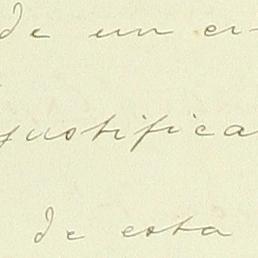 de un er-
justifica
de esta